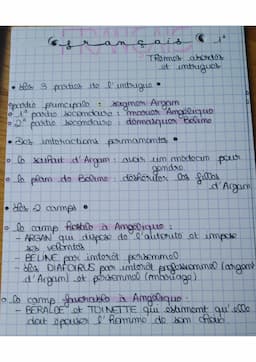 FRANÇAIS
français 1°
Thèmes abordés
et intrigues
• Les 3 parties de l'intrigue •
partie principale : soigner Argan
• 1° partie secondaire : marier Angélique
• 2° partie secondaire : démasquer Béline
• Des interactions permanentes •
• le souhait d'Argan : avoir un médecin pour
gendre
• le plan de Béline : déshériter les filles
d'Argan
• Les 2 camps •
• le camp hostile à Angélique :
- ARGAN qui dispose de l'autorité et impose
ses volontés
- BELINE par intérêt personnel
- les DIAFOIRUS par intérêt professionnel (argent
d'Argan) et personnel (mariage)
• le camp favorable à Angélique
- BERALDE et TOINETTE qui estiment qu'elle
doit épouser l'homme de son choix